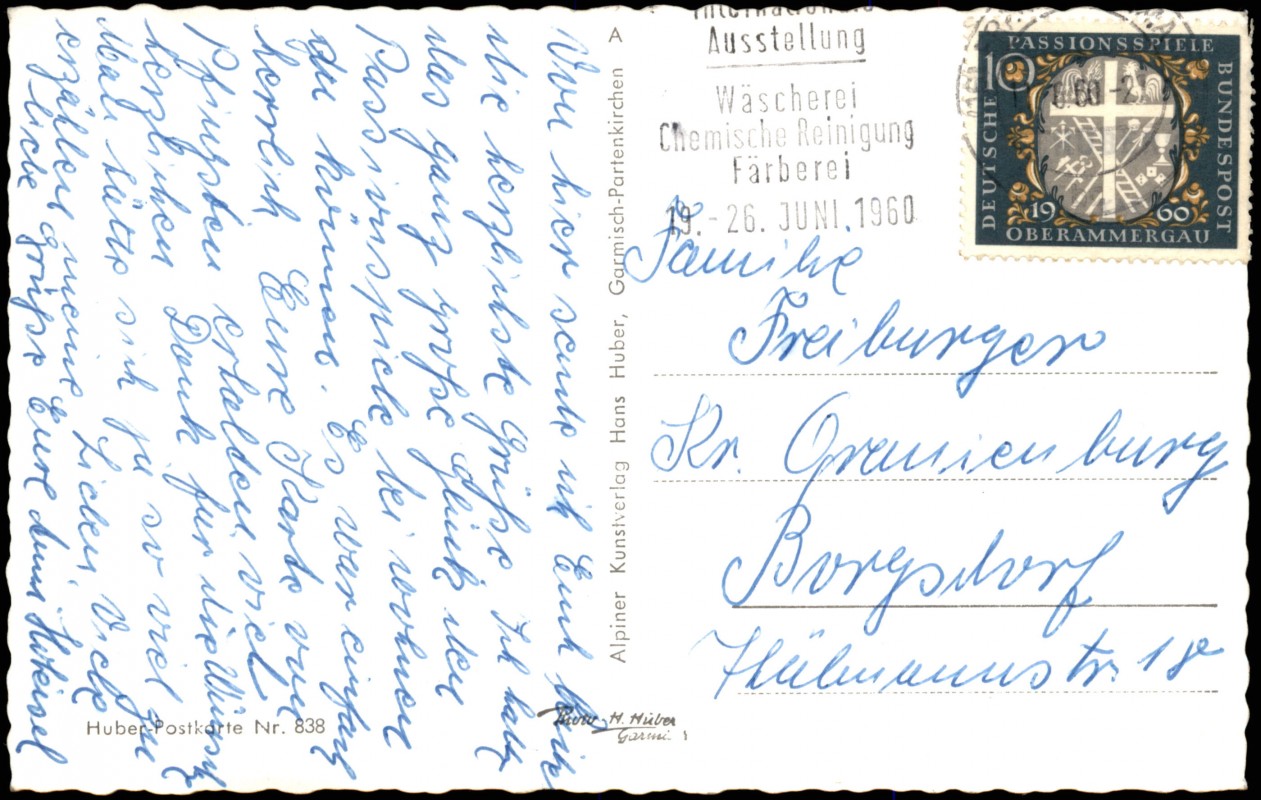 Von hier sende ich Euch
die herzlichste Grüße. Ich hatte
das ganz große Glück den
Passionsspiele bei wohnen
zu können. Es war einfach
herrlich. Eure Karte von
Pfingsten erhalten viel
herzlichen Dank für die Wünsche
Man hätte sich ja so viel zu
erzählen meine Lieben. Viele
liebe Grüße Eure
A
Alpiner Kunstverlag Hans Huber, Garmisch-Partenkirchen
Huber-Postkarte Nr. 838
H. Huber
Garmi
Internationale
Ausstellung
Wäscherei
Chemische Reinigung
Färberei
19. - 26. JUNI 1960
PASSIONSSPIELE
10
DEUTSCHE
BUNDESPOST
1960
OBERAMMERGAU
Familie
Freiburger
Kr. Oranienburg
Borgsdorf
Hülmannstr. 18